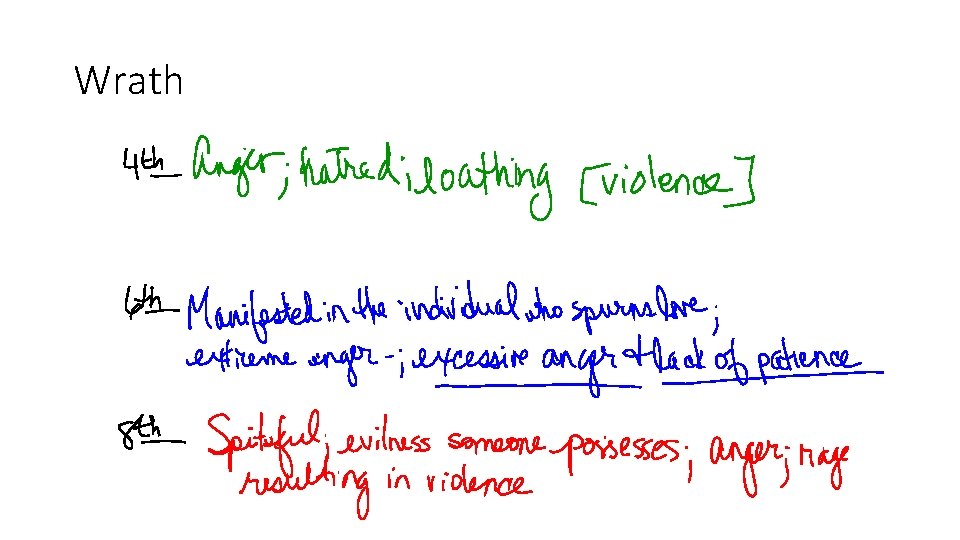 Wrath
4th Anger; hatred; loathing [violence]
6th Manifested in the individual who spurns love;
extreme anger -; excessive anger & lack of patience
8th Spiteful; evilness someone possesses; anger; rage
resulting in violence